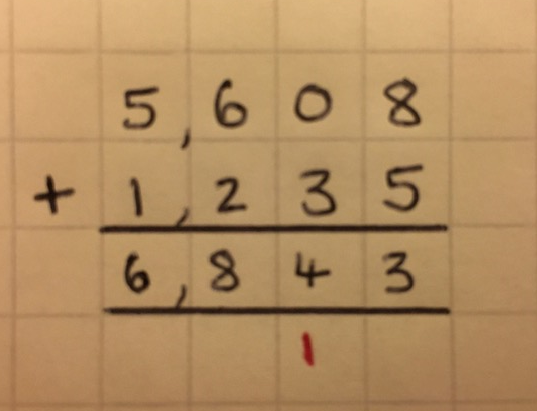 5,608
+ 1,235
6,843
1